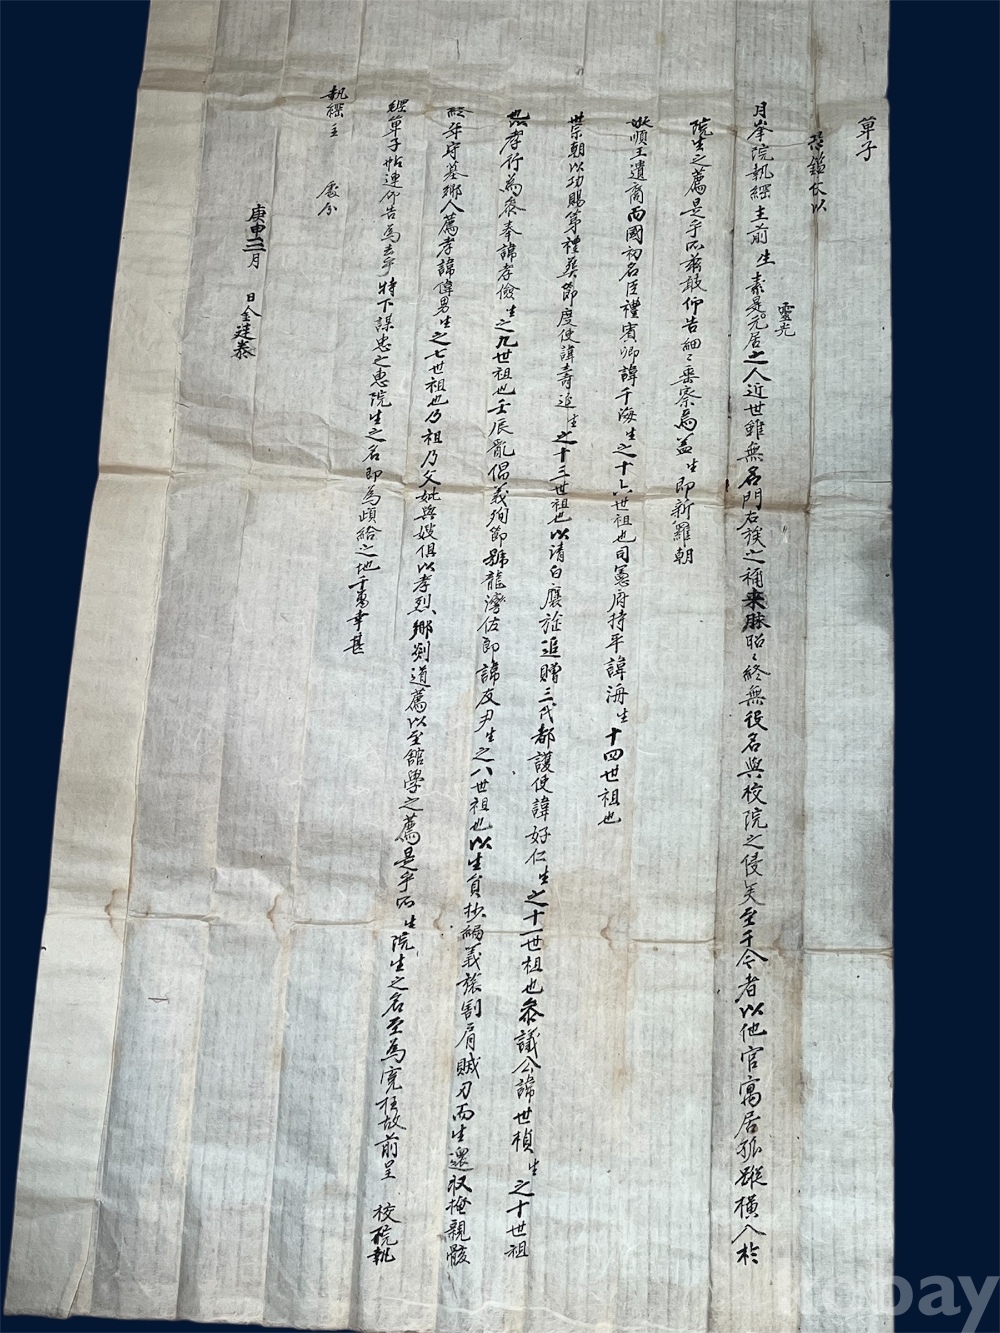 單子
恐鑑伏以
月峯院執綱主前 生 素是元居之人近世雖無名門右族之稱来脉昭〻終無役名與校院之侵矣至于今者以他官寓居孤蹤橫入於
靈光
院生之薦是乎所玆敢仰告細〻垂察焉盖 生 即新羅朝
敬順王遺裔而國初名臣禮賓卿諱千海 生之十六世祖也司憲府持平諱海 生 十四世祖也
世宗朝以功賜第禮葬節度使諱壽延 生之十三世祖也以清白廉旌追贈三代都護使諱好仁 生之十一世祖也參議公諱世楨 生之十世祖
也以孝行為叅奉諱孝儉 生之九世祖也壬辰亂倡義殉節號龍灣佐郎諱友尹 生之八世祖也以生員抄褐義旅割肩賊刃而生還収掩親骸
終年守墓鄉人薦孝諱偉男 生之七世祖也乃祖乃父妣與嫂俱以孝烈鄉剡道薦以至舘學之薦是乎所 生 院生之名至為寃枉故前呈 校院執
綱單子帖連仰告為去乎特下謀忠之惠院生之名即為頉給之地千萬幸甚
執綱主 處分
庚申二月 日 金廷泰
kobay